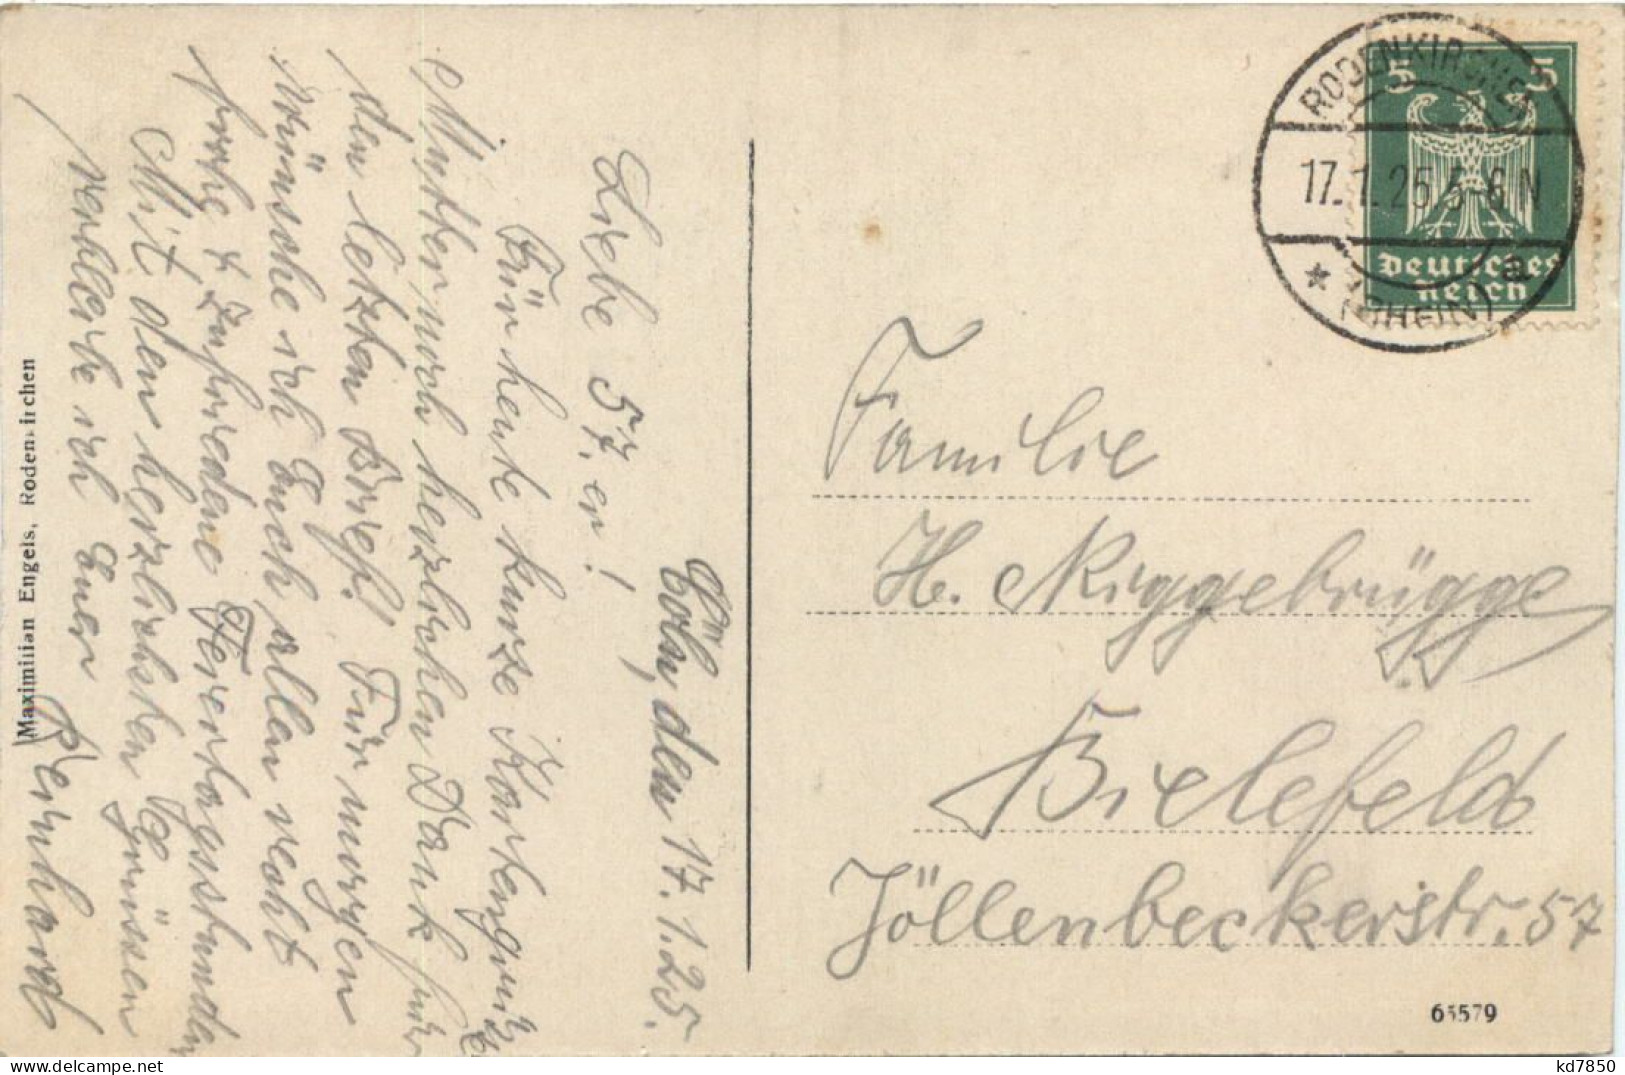 Cöln, den 17.1.25.
Liebe 57.er!
Für heute kurze Kartengrüße
Mutter noch herzlichen Dank für
den letzten Brief! Für morgen
wünsche ich Euch allen recht
frohe & zufriedene Feiertagsstunden
Mit den herzlichsten Grüssen
verbleibe ich Euer Reinhard
Maximilian Engels, Rodenkirchen
RODENKIRCHEN
17.1.25.5-6N
* (RHEIN) a
5 5
Deutsches
Reich
Familie
H. Niggebrügge
Bielefeld
Jöllenbeckerstr. 57
63579
kd7850